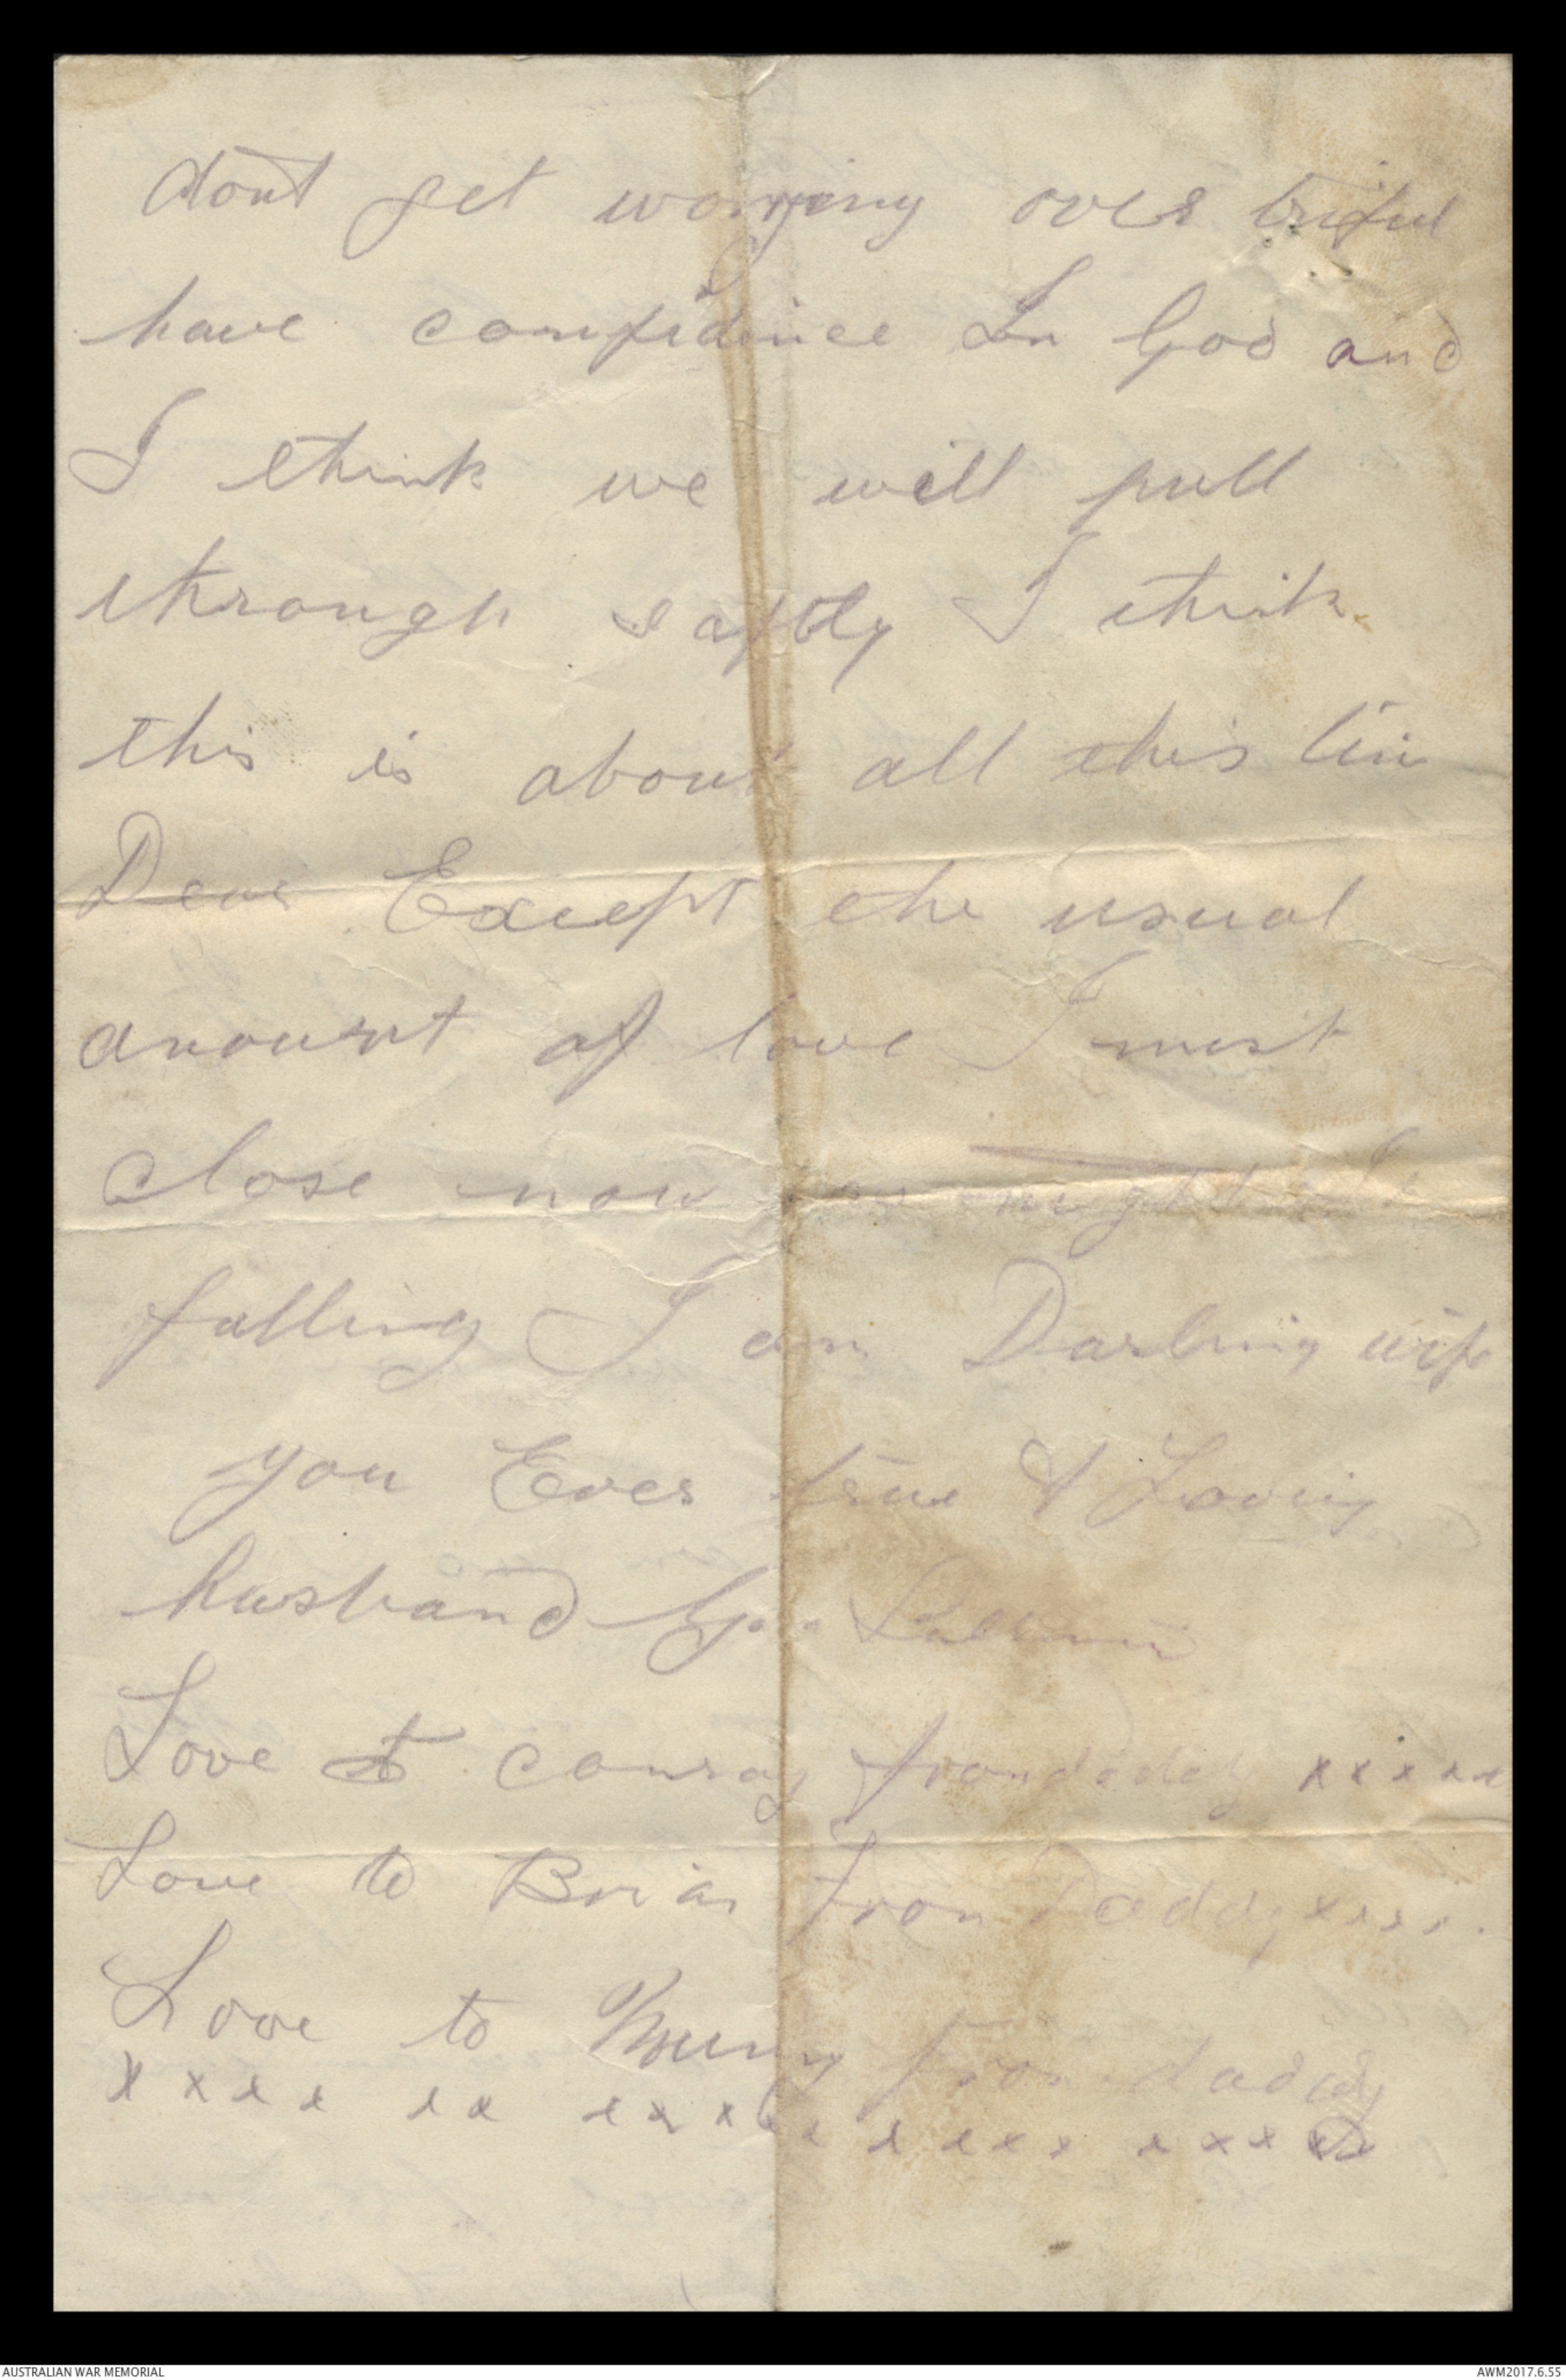 dont get worrying over
have confidence In God and
I think we will pull
through saftly I think
this is about all this
Dear Except the usual
amount of love I must
close now as night is
falling I am Darling wife
you Ever true & Loving
husband
Love to from dadey xxxxx
Love to Brian From Daddy xxxx.
Love to from daddy
xxxx xx xxxx x xxxx xxxx
AUSTRALIAN WAR MEMORIAL
AWM2017.6.55